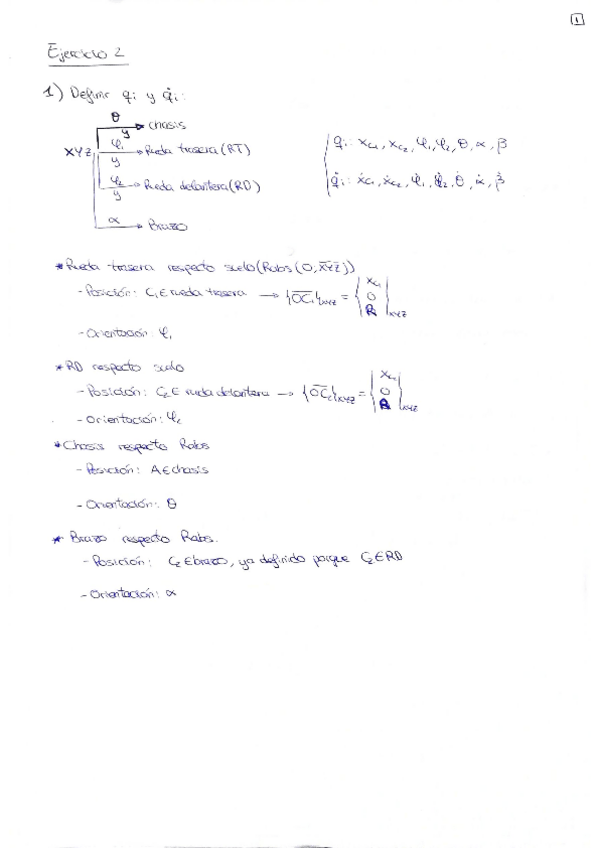 1
Ejercicio 2
1) Definir qi y q̇i:
θ
y → chasis
XYZ φ1 y → Rueda trasera (RT)
φ2 y → Rueda delantera (RD)
α → Brazo
qi: xc1, xc2, φ1, φ2, θ, α, β
q̇i: ẋc1, ẋc2, φ̇1, φ̇2, θ̇, α̇, β̇
* Rueda trasera respecto suelo (Rabs (O, XYZ))
- Posición: C1 ∈ rueda trasera → {OC1}XYZ = {xc1 0 R}XYZ
- Orientación: φ1
* RD respecto suelo
- Posición: C2 ∈ rueda delantera → {OC2}XYZ = {0 R}XYZ
- Orientación: φ2
* Chasis respecto Rabs
- Posición: A ∈ chasis
- Orientación: θ
* Brazo respecto Rabs.
- Posición: C2 ∈ brazo, ya definido porque C2 ∈ RD
- Orientación: α